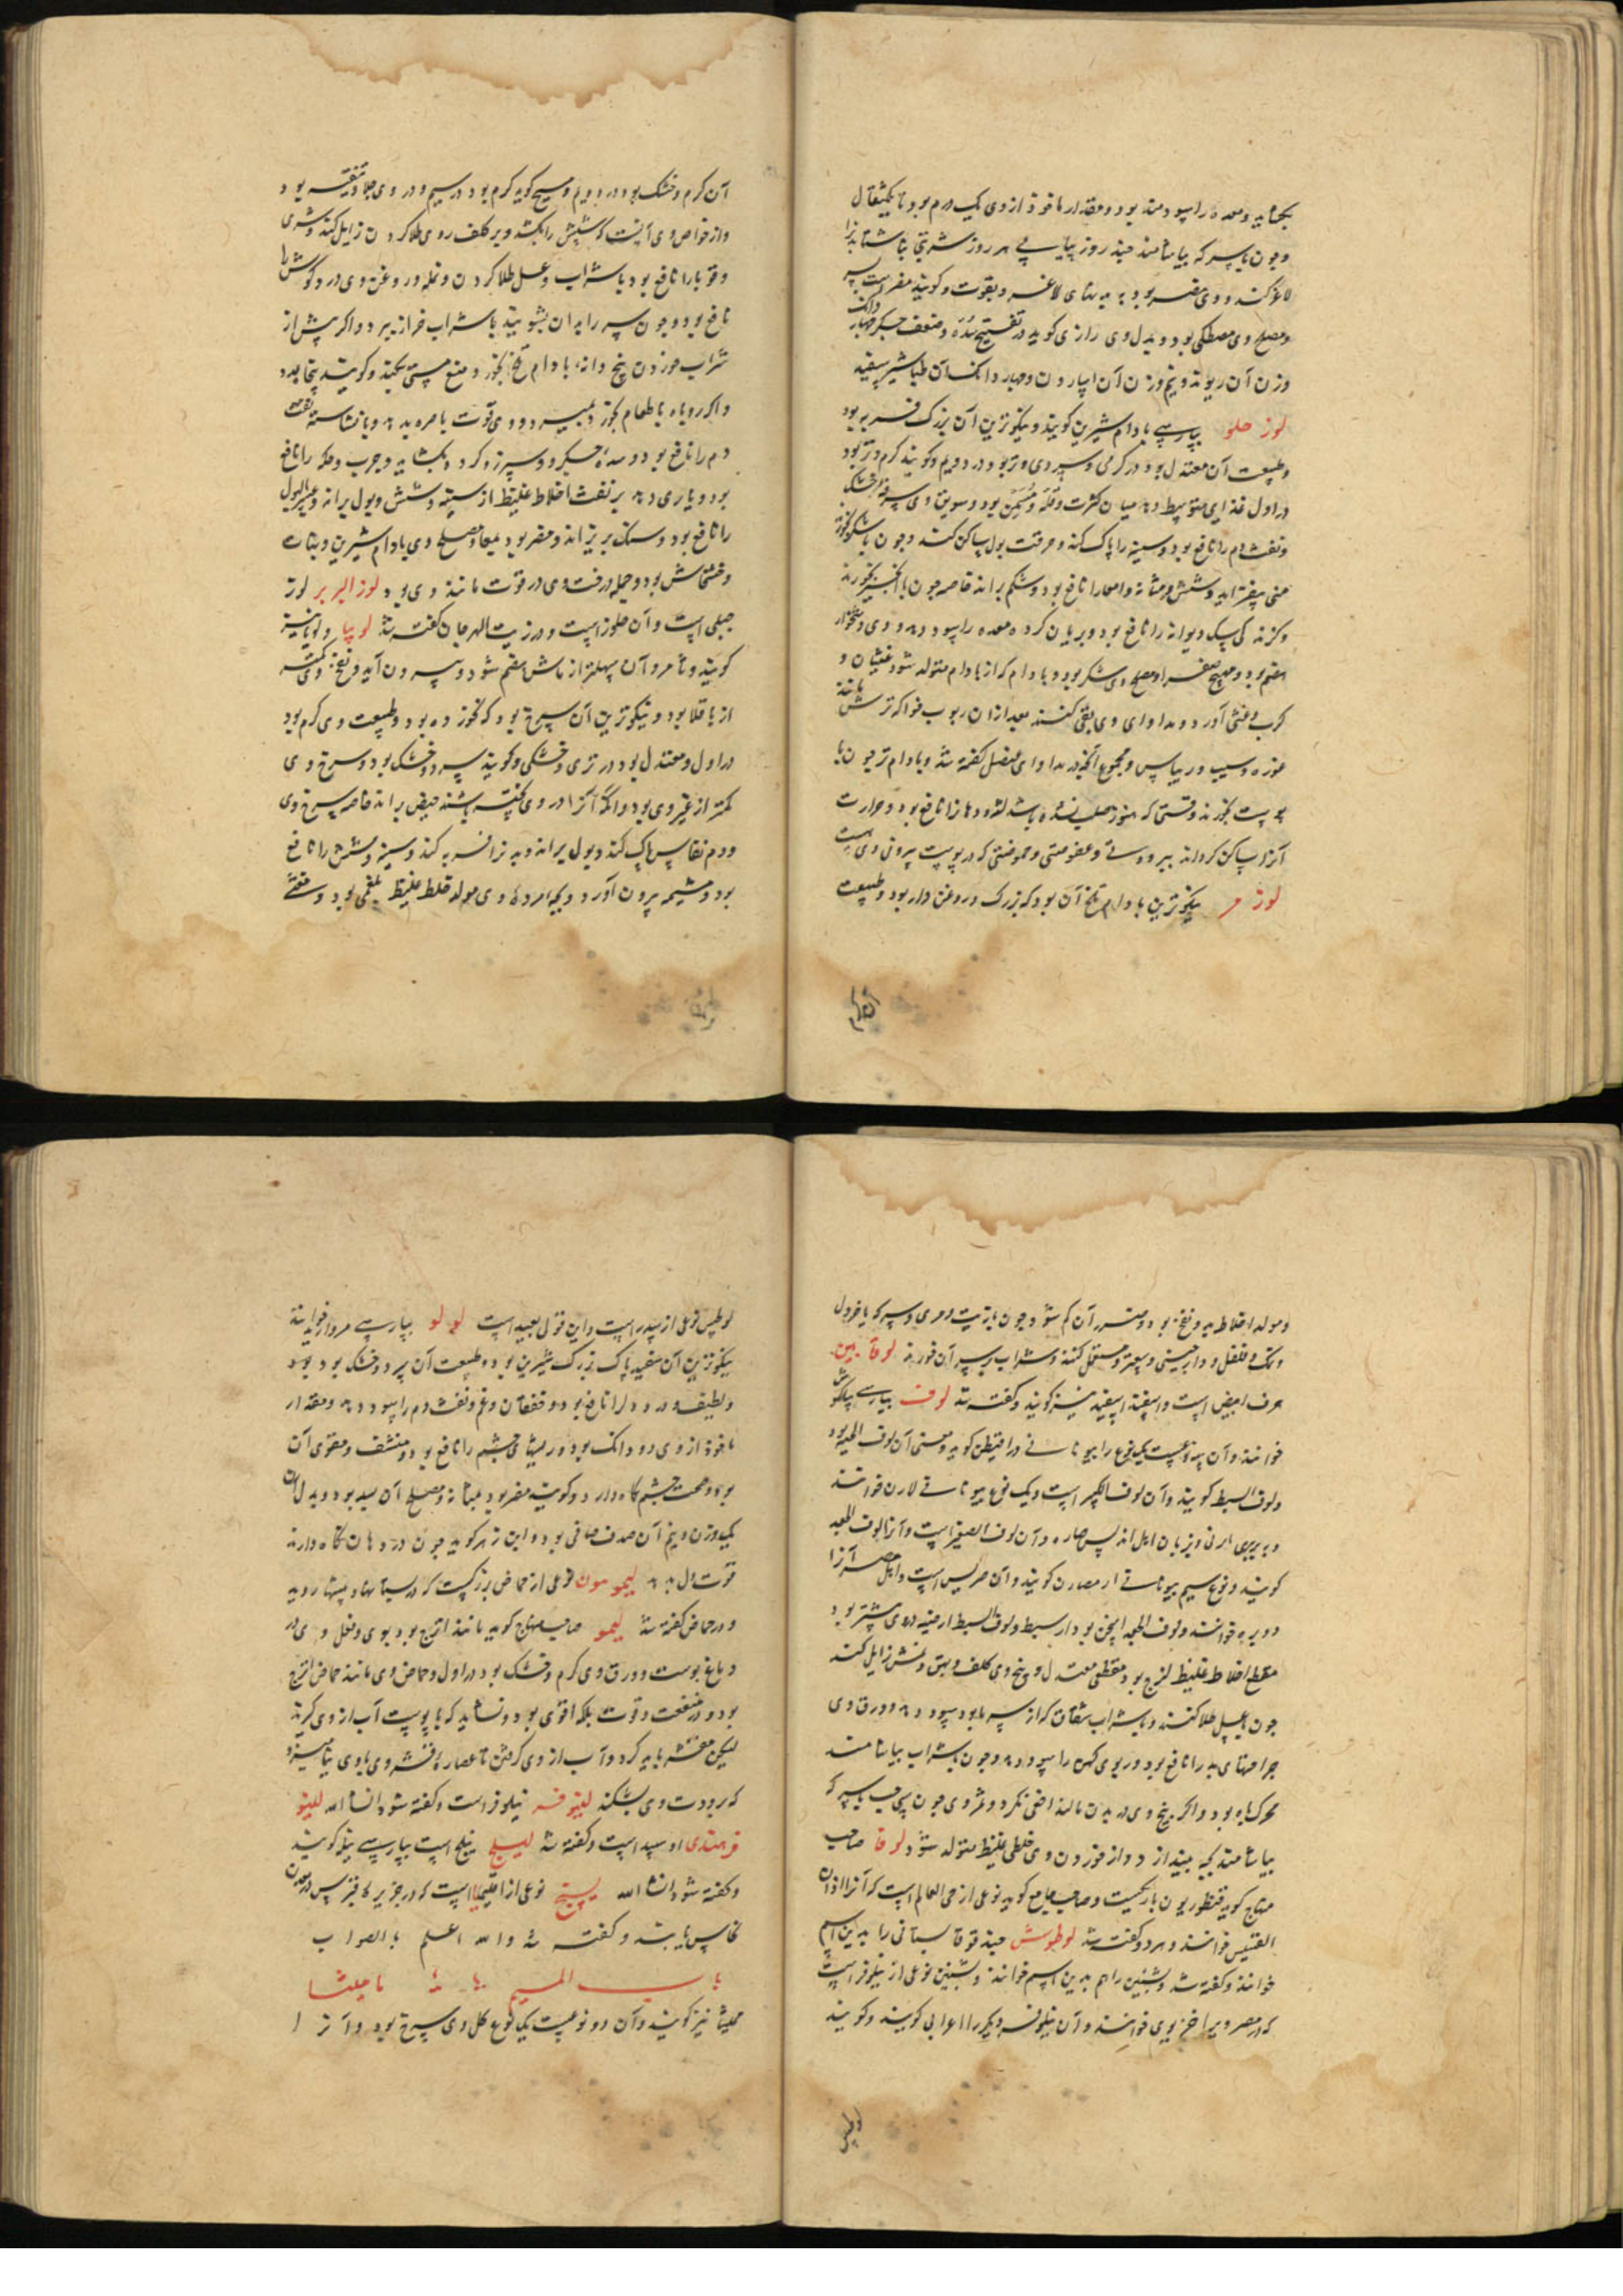 بکشاید و معده را سود مند بود و مقدار ماخوذ از وی یک درم بود تا یکمثقال
و چون با سرکه بیاشامند چند روز پیاپی هر روز شربتی ناشتا بدن را
لاغر کند و وی مضر بود به
و مصلح وی مصطکی بود و بدل وی رازی کوید در تفتیح سده و ضعف جکر چهار دانک
وزن آن ریوند و نیم وزن آن اسارون و چهار دانک آن طباشیر سفید
لوز حلو بپارسی بادام شیرین کویند و نیکوترین آن بزرک فربه بود
و طبیعت آن معتدل بود در کرمی و سردی و تر بود در دویم و کویند کرم و تر بود
در اول غذای متوسط دهد میان کثرت و قلت و مسمن بود و سویق وی سرفه خشک
و نفث دم را نافع بود و سینه را پاک کند و حرقت بول ساکن کند و چون با شکر بخورند
منی بیفزاید و شش و مثانه و امعا را نافع بود و شکم براند خاصه چون با انجیر بخورند
و کزند کی سک دیوانه را نافع بود و بریان کرده معده را سود دهد و وی دشخوار
هضم بود و مهیج صفرا و مصلح وی شکر بود و بادام که از بادام متولد شود غثیان و
کرب و غشی آورد و مداوای وی بقی کنند بعد از آن ربوب فواکه ترش مانند
غوره و سیب و ریباس و مجموع آنچه در مداوای مفصل کفته شد و بادام تر چون با
پوست بخورند وقتی که هنوز صلب نشده باشد لثه و دهان را نافع بود و حرارت
آنرا ساکن کرداند ببرودتی و عفوصتی و حموضتی که در پوست بیرونی وی هست
لوز مر نیکوترین بادام تلخ آن بود که بزرک و روغن دار بود و طبیعت
آن کرم و خشک بود در دویم و مسیح کوید کرم بود در سیم و در وی جلا و تنقیه بود
و از خواص وی آنست که شپش را بکشد و بر کلف روی طلا کردن زایل کند و شری
و قوبا را نافع بود با شراب و عسل طلا کردن و نمله و روغن وی درد کوش را
نافع بود و چون سر را بدان بشویند با شراب حزاز ببرد و اکر پیش از
شراب خوردن پنج دانه بادام تلخ بخورد منع مستی بکند و کویند پنجاه عدد
و اکر روباه با طعام بخورد بمیرد و وی قوت باصره بدهد و با نشاسته نفث
دم را نافع بود و سده جکر و سپرز و کرده بکشاید و جرب و حکه را نافع
بود و یاری دهد بر نفث اخلاط غلیظ از سینه و شش و بول براند و عسر البول
را نافع بود و سنک بریزاند و مضر بود بمعا و مصلح وی بادام شیرین و نبات
و خشخاش بود و حمله درخت وی در قوت مانند وی بود لوز البربر لوز
جبلی است و آن جلوز است و در زیت الهرجان کفته شد لوبیا و لوبا نیز
کویند و ثامر و آن سهلتر از ماش هضم شود و بیرون آید و نفخ وی کمتر
از باقلا بود و نیکوترین آن سرخ بود که نخورده بود و طبیعت وی کرم بود
در اول و معتدل بود در تری و خشکی و کویند سرد و خشک بود و سرخ وی
کمتر از غیر وی بود و آنکه آنرا در وی پخته باشند حیض براند خاصه سرخ وی
و دم نفاس پاک کند و بول براند و بدن را فربه کند و سینه و شش را نافع
بود و مشیمه بیرون آورد و بچه مرده و وی مولد خلط غلیظ بلغمی بود و منفخ
و مولد اخلاط بد و نفخ بود و مضرت آن کم شود چون با زیت و مری و سرکه یا خردل
و نمک و فلفل و دارچینی و سعتر مستعمل کنند و شراب بر سر آن خورند لوقابین
حرف ابیض است و اسفند اسفید نیز کویند و کفته شد لوف بپارسی پیلکوش
خوانند و آن سه نوعست یک نوع را بیونانی دراقیطن کویند و معنی آن لوف الحیه بود
و لوف السبط کویند و آن لوف الکبیر است و یک نوع بیونانی لارن خوانند
و ببربری ایرنی و بزبان اهل اندلس صاره و آن لوف الصغیر است و آنرا لوف الجعد
کویند و نوع سیم بیونانی ارمصارن کویند و آن صریس است و اهل مصر آنرا
دویره خوانند و لوف الجعد اسخن بود از سبط و لوف السبط ارضیه در وی بیشتر بود
مقطع اخلاط غلیظ لزج بود مقطعی معتدل و بیخ وی کلف و بهق و نمش زایل کند
چون با عسل طلا کنند و با شراب شقاق که از سرما بود سود دهد و ورق وی
جراحتهای بد را نافع بود و ربوی کهن را سود دهد و چون با شراب بیاشامند
محرک باه بود و اکر بیخ وی در بدن مالند افعی نکزد و ثمر وی چون سی حب با سرکه
بیاشامند بچه بیندازد و از خوردن وی خلطی غلیظ متولد شود لوفا صاحب
منهاج کوید قنطوریون باریکست و صاحب جامع کوید نوعی از حی العالم است که آنرا اذان
القسیس خوانند و هر دو کفته شد لوطوس حندقوقا بستانی را بدین اسم
خوانند و کفته شد و بشنین را هم بدین اسم خوانند و بشنین نوعی از نیلوفر است
که در مصر وی را خنزیری خوانند و آن نیلوفر و دیکر را اعرابی کویند و کویند
لوطس نوعی از سدر است و این قول بعید است لولو بپارسی مروارید خوانند
نیکوترین آن سفید پاک بزرک شیرین بود و طبیعت آن سرد و خشک بود
و لطیف و درد دل را نافع بود و خفقان و غم و نفث دم را سود دهد و مقدار
ماخوذ از وی دو دانک بود و ریشهای چشم را نافع بود و منشف و مقوی آن
بود و صحت چشم نکاه دارد و کویند مضر بود بمثانه و مصلح آن بسد بود و بدل آن
یک وزن و نیم آن صدف صافی بود و ابن زهر کوید چون در دهان نکاه دارند
قوت دل دهد لیمومون نوعی از حماض بزرکست که در بستانها و بیشها روید
و در حماض کفته شد لیمو صاحب منهاج کوید مانند اترج بود بوی و فعل وی در
دماغ پوست و ورق وی کرم و خشک بود در اول و حماض وی مانند حماض اترج
بود در منفعت و قوت بلکه اقوی بود و نشاید که با پوست آب از وی کیرند
لیکن مقشر باید کرد و آب از وی کرفتن تا عصاره قشر وی با وی نیامیزد
که برودت وی بشکند لینوفر نیلوفر است و کفته شود انشا الله لینو
فر هندی او سپید است و کفته شد لیلج نیلج است بپارسی نیل کویند
و کفته شود انشا الله لسیج نوعی از اقلیمیا است که در جزیره قبرس در معدن
نحاس یابند و کفته شد والله اعلم بالصواب
باب المیم مامیثا
ممیثا نیز کویند و آن دو نوعست یک نوع کل وی سرخ بود و آنرا